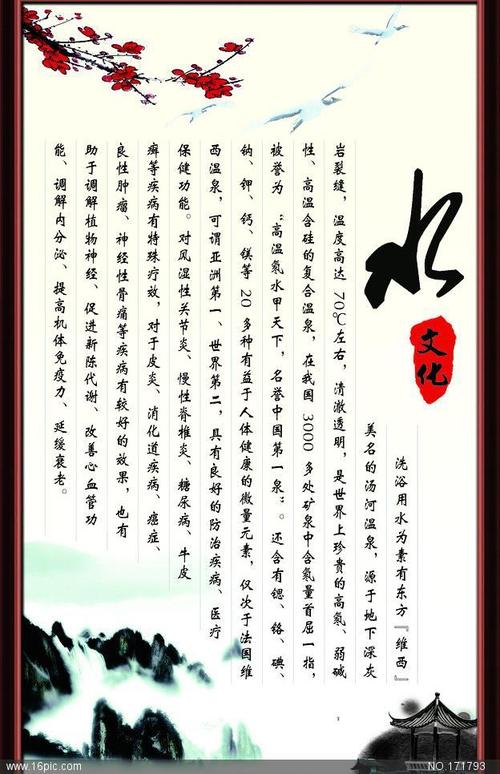 水
文化
洗浴用水为素有东方『维西』
美名的汤河温泉，源于地下深灰
岩裂缝，温度高达70℃左右，清澈透明，是世界上珍贵的高氡、弱碱
性、高温含硅的复合温泉，在我国3000多处矿泉中含氡量首屈一指，
被誉为“高温氡水甲天下，名誉中国第一泉”。还含有锶、铬、碘、
钠、钾、钙、镁等20多种有益于人体健康的微量元素，仅次于法国维
西温泉，可谓亚洲第一、世界第二，具有良好的防治疾病、医疗
保健功能。对风湿性关节炎、慢性脊椎炎、糖尿病、牛皮
癣等疾病有特殊疗效，对于皮炎、消化道疾病、癌症、
良性肿瘤、神经性骨痛等疾病有较好的效果，也有
助于调解植物神经、促进新陈代谢、改善心血管功
能、调解内分泌、提高机体免疫力、延缓衰老。
www.16pic.com
NO.171793